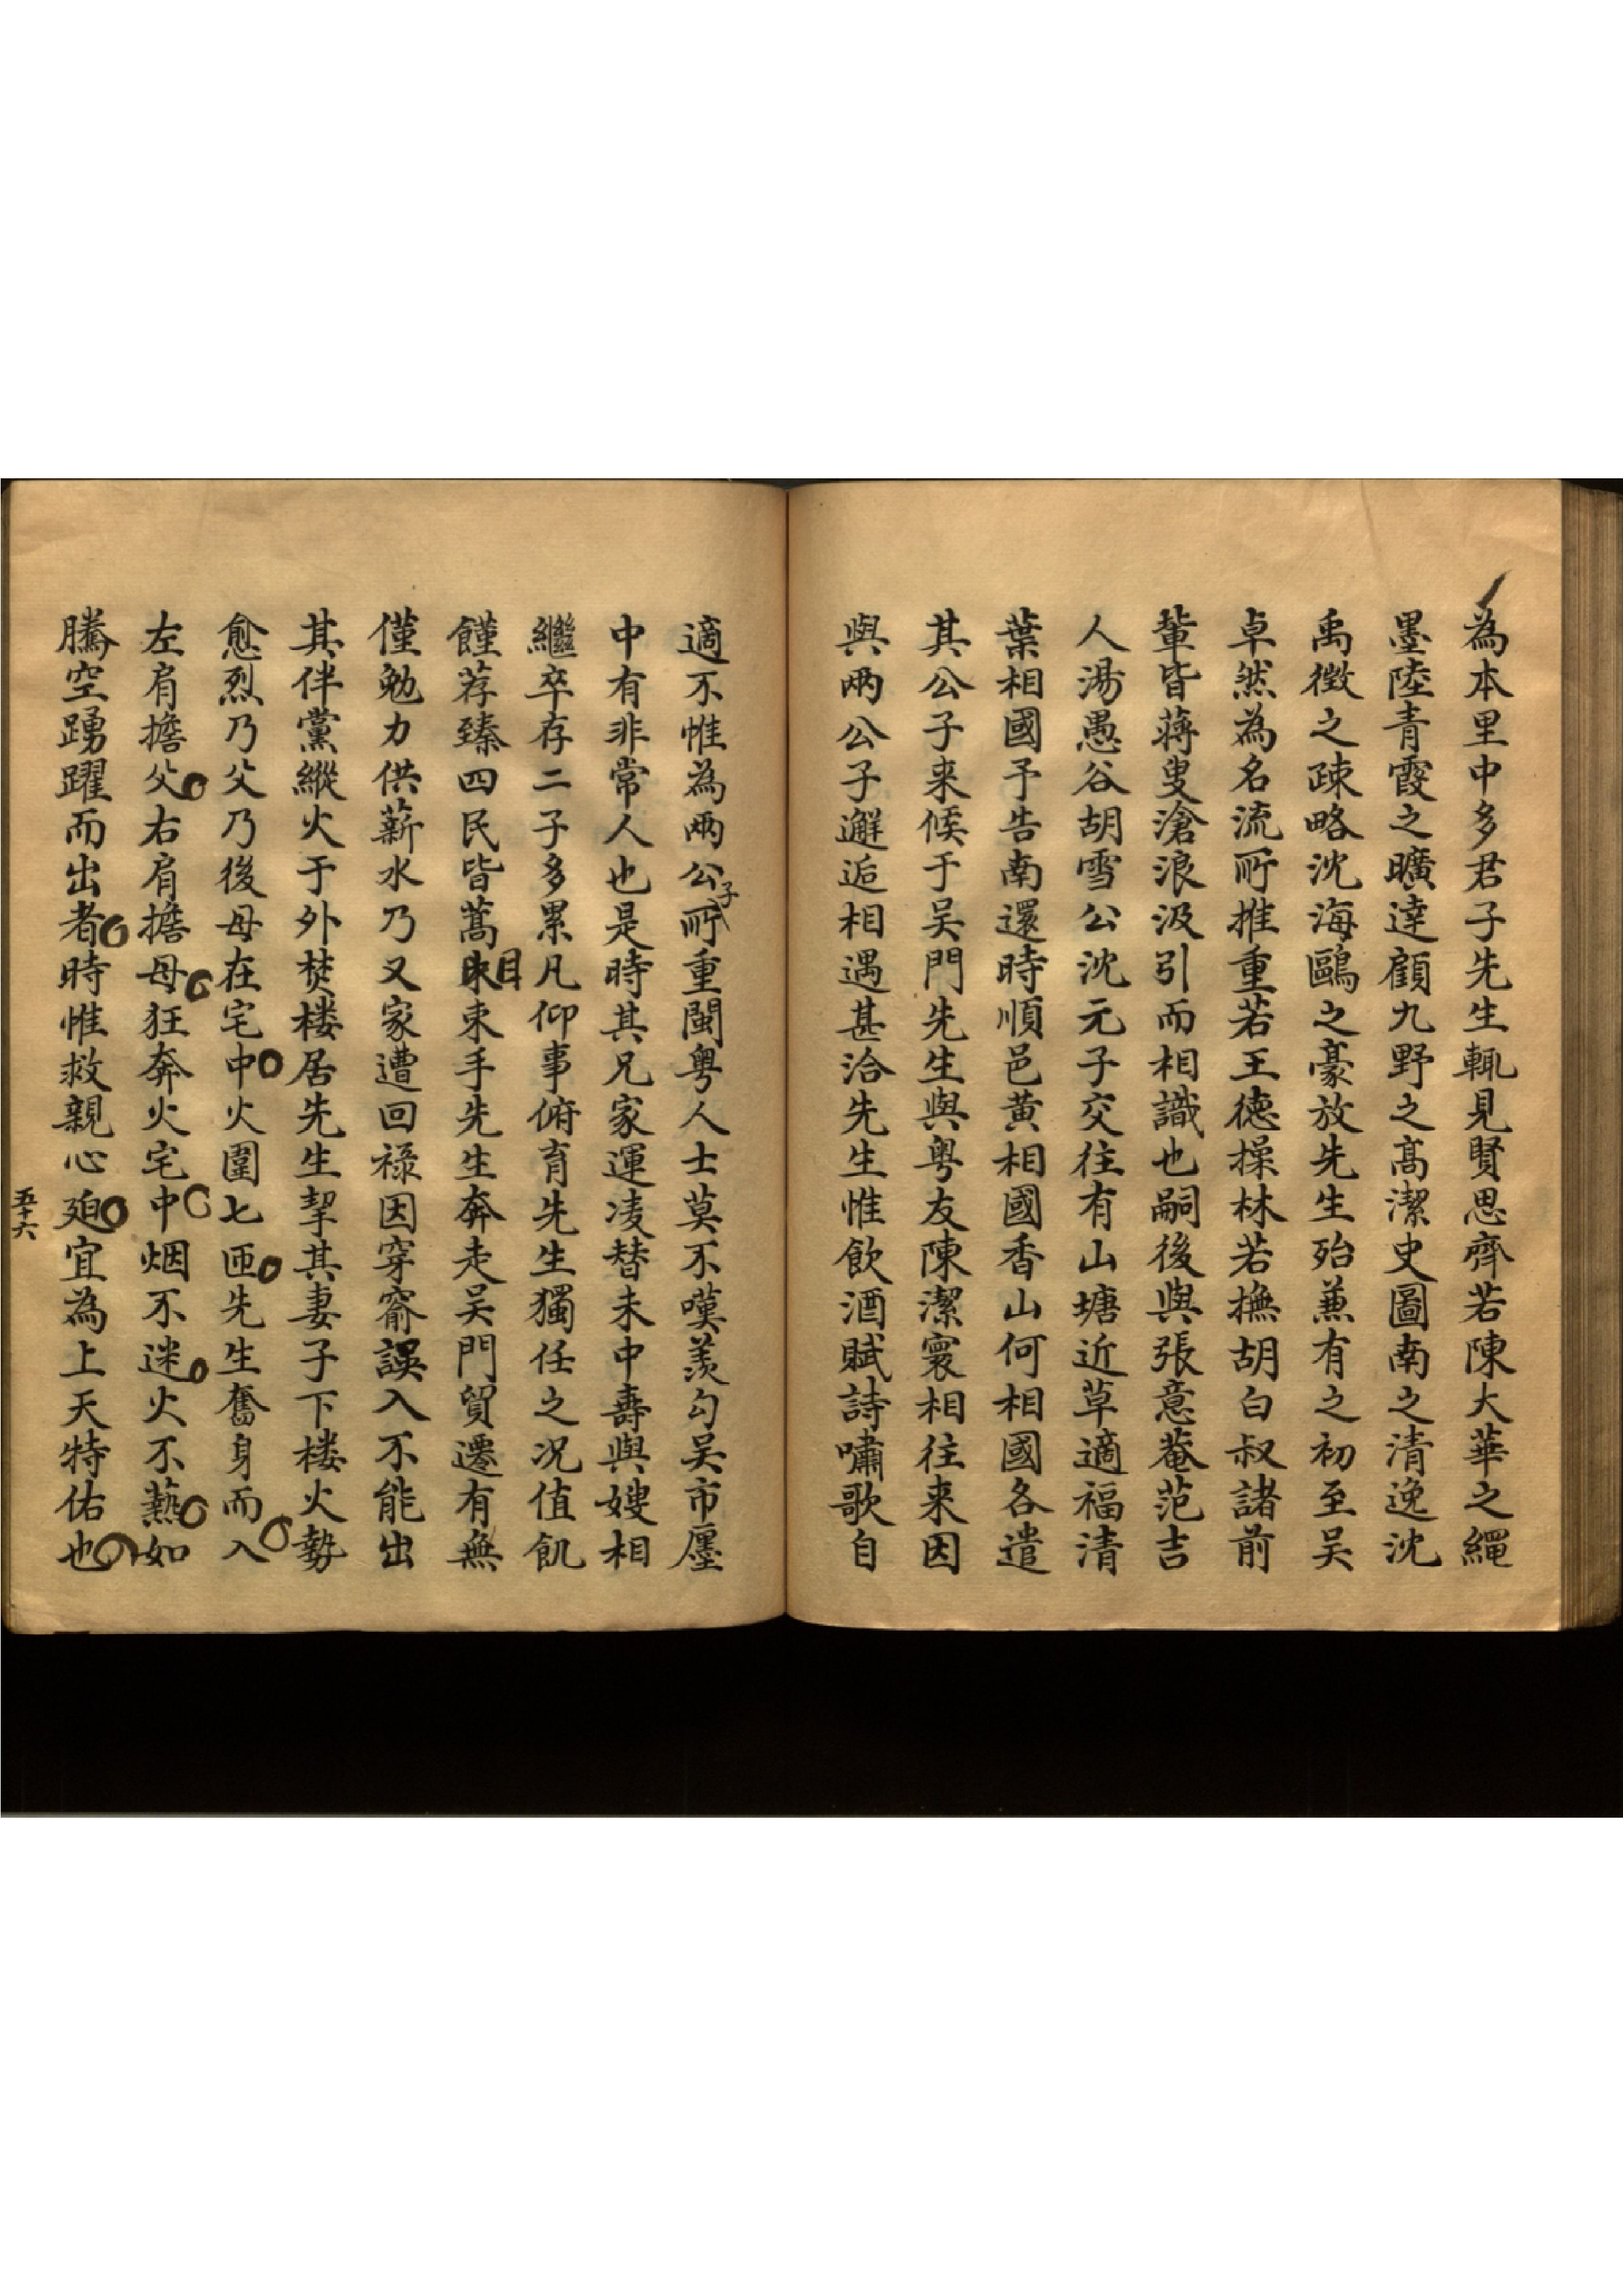 為本里中多君子先生輒見賢思齊若陳大華之繩
墨陸青霞之曠達顧九野之高潔史圖南之清逸沈
禹徴之疎略沈海鷗之豪放先生殆兼有之初至吴
卓然為名流所推重若王德操林若撫胡白叔諸前
輩皆蔣叟滄浪汲引而相識也嗣後與張意菴范吉
人湯愚谷胡雪公沈元子交往有山塘近草適福清
葉相國予告南還時順邑黄相國香山何相國各遣
其公子来候于吴門先生與粤友陳潔寰相往来因
與兩公子邂逅相遇甚洽先生惟飲酒賦詩嘯歌自
適不惟為兩公子所重閩粤人士莫不嘆羡勾吴市廛
中有非常人也是時其兄家運凌替未中壽與嫂相
繼卒存二子多累凡仰事俯育先生獨任之况值飢
饉荐臻四民皆蒿目束手先生奔走吴門貿遷有無
僅勉力供薪水乃又家遭回禄因穿窬誤入不能出
其伴黨縱火于外焚楼居先生挈其妻子下楼火勢
愈烈乃父乃後母在宅中火圍七匝先生奮身而入
左肩擔父右肩擔母狂奔火宅中烟不迷火不爇如
騰空踴躍而出者時惟救親心廹宜為上天特佑也
五十六